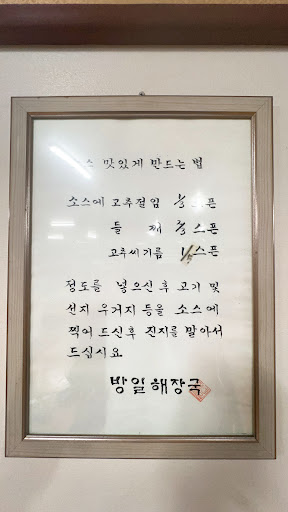 맛있게 만드는 법
소스에 고추절임 스픈
들 깨 스픈
고추씨기름 스픈
정도를 넣으신후 고기 및
선지 우거지 등을 소스에
찍어 드신후 진지를 말아서
드십시요
방일해장국